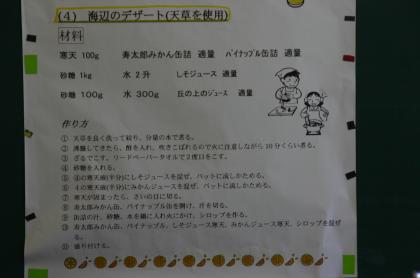 (4) 海辺のデザート(天草を使用)
材料
寒天 100g 寿太郎みかん缶詰 適量 パイナップル缶詰 適量
砂糖 1kg 水 2升 しそジュース 適量
砂糖 100g 水 300g 丘の上のジュース 適量
作り方
① 天草を良く洗って絞り、分量の水で煮る。
② 沸騰してきたら、酢を入れ、吹きこぼれるので火に注意しながら10分くらい煮る。
③ ざるでこす。リードペーパータオルで2度目をこす。
④ 砂糖を入れる。
⑤ ④の寒天液(半分)にしそジュースを混ぜ、バットに流しかためる。
⑥ 4の寒天液(半分)にみかんジュースを混ぜ、バットに流しかためる。
⑦ 寒天が固まったら、さいの目に切る。
⑧ 寿太郎みかん缶、パイナップル缶を開け、汁を切る。
⑨ 缶詰の汁、砂糖、水を鍋に入れ火にかけ、シロップを作る。
⑩ 寿太郎みかん缶、パイナップル缶、しそジュース寒天、みかんジュース寒天、シロップを混ぜる。
⑪ 盛り付ける。